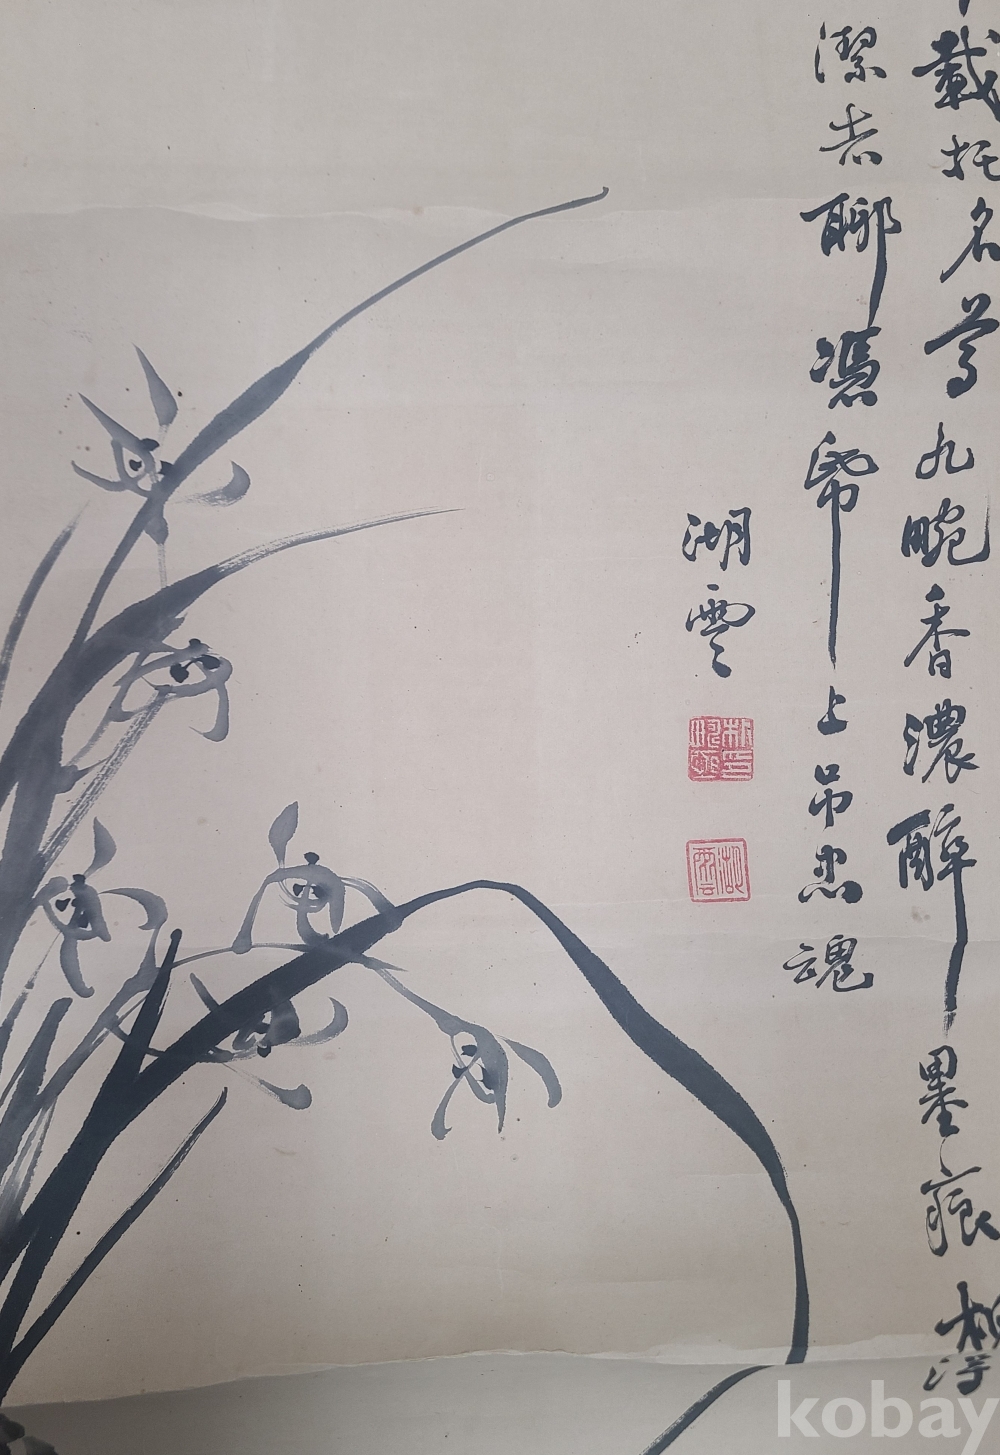 載托名尊九畹香濃醉墨痕
潔者聊憑帋上吊忠魂
湖雲
湖雲
kobay